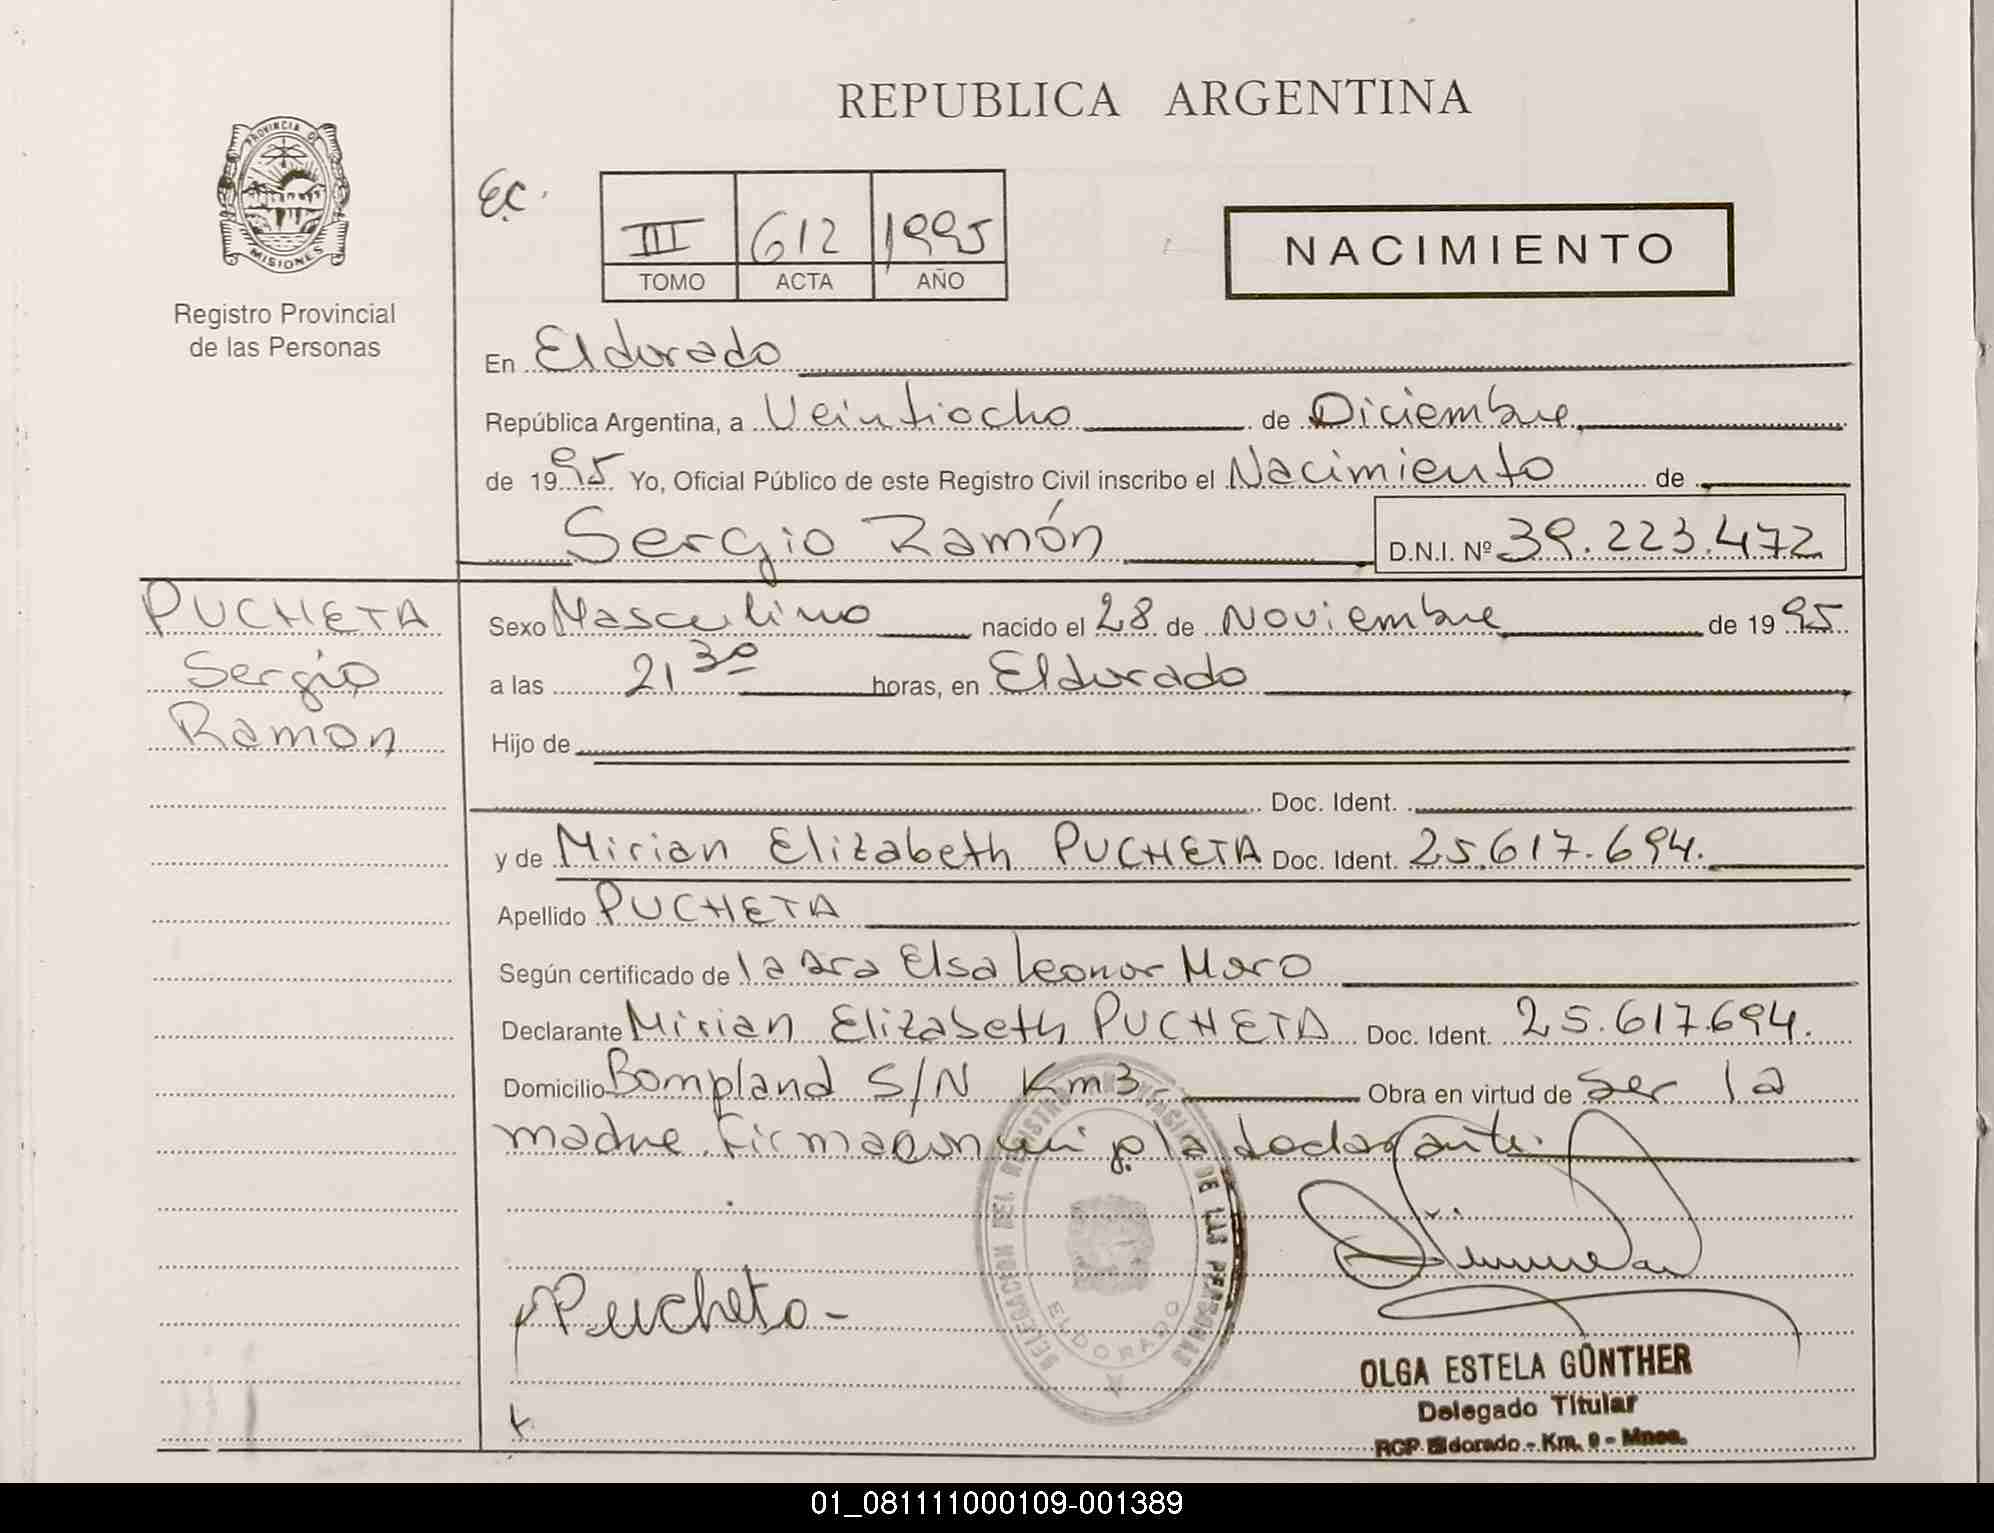 REPUBLICA ARGENTINA
PROVINCIA DE
MISIONES
Registro Provincial
de las Personas
E.C.
III 612 1995
TOMO ACTA AÑO
NACIMIENTO
En Eldorado
República Argentina, a Veintiocho de Diciembre
de 1995 Yo, Oficial Público de este Registro Civil inscribo el Nacimiento de
Sergio Ramón D.N.I. Nº 39.223.472
PUCHETA
Sergio
Ramon
Sexo Masculino nacido el 28 de Noviembre de 1995
a las 21 30 horas, en Eldorado
Hijo de
Doc. Ident.
y de Mirian Elizabeth PUCHETA Doc. Ident. 25.617.694.
Apellido PUCHETA
Según certificado de la Dra Elsa Leonor Moro
Declarante Mirian Elizabeth PUCHETA Doc. Ident. 25.617.694.
Domicilio Bompland S/N Km 3 Obra en virtud de Ser la
madre. Firma con mi p. la declarante.
DELEGACION DEL REGISTRO DE LAS PERSONAS
ELDORADO
Pucheta
OLGA ESTELA GÜNTHER
Delegado Titular
RCP Eldorado - Km. 9 - Mnes.
01_081111000109-001389